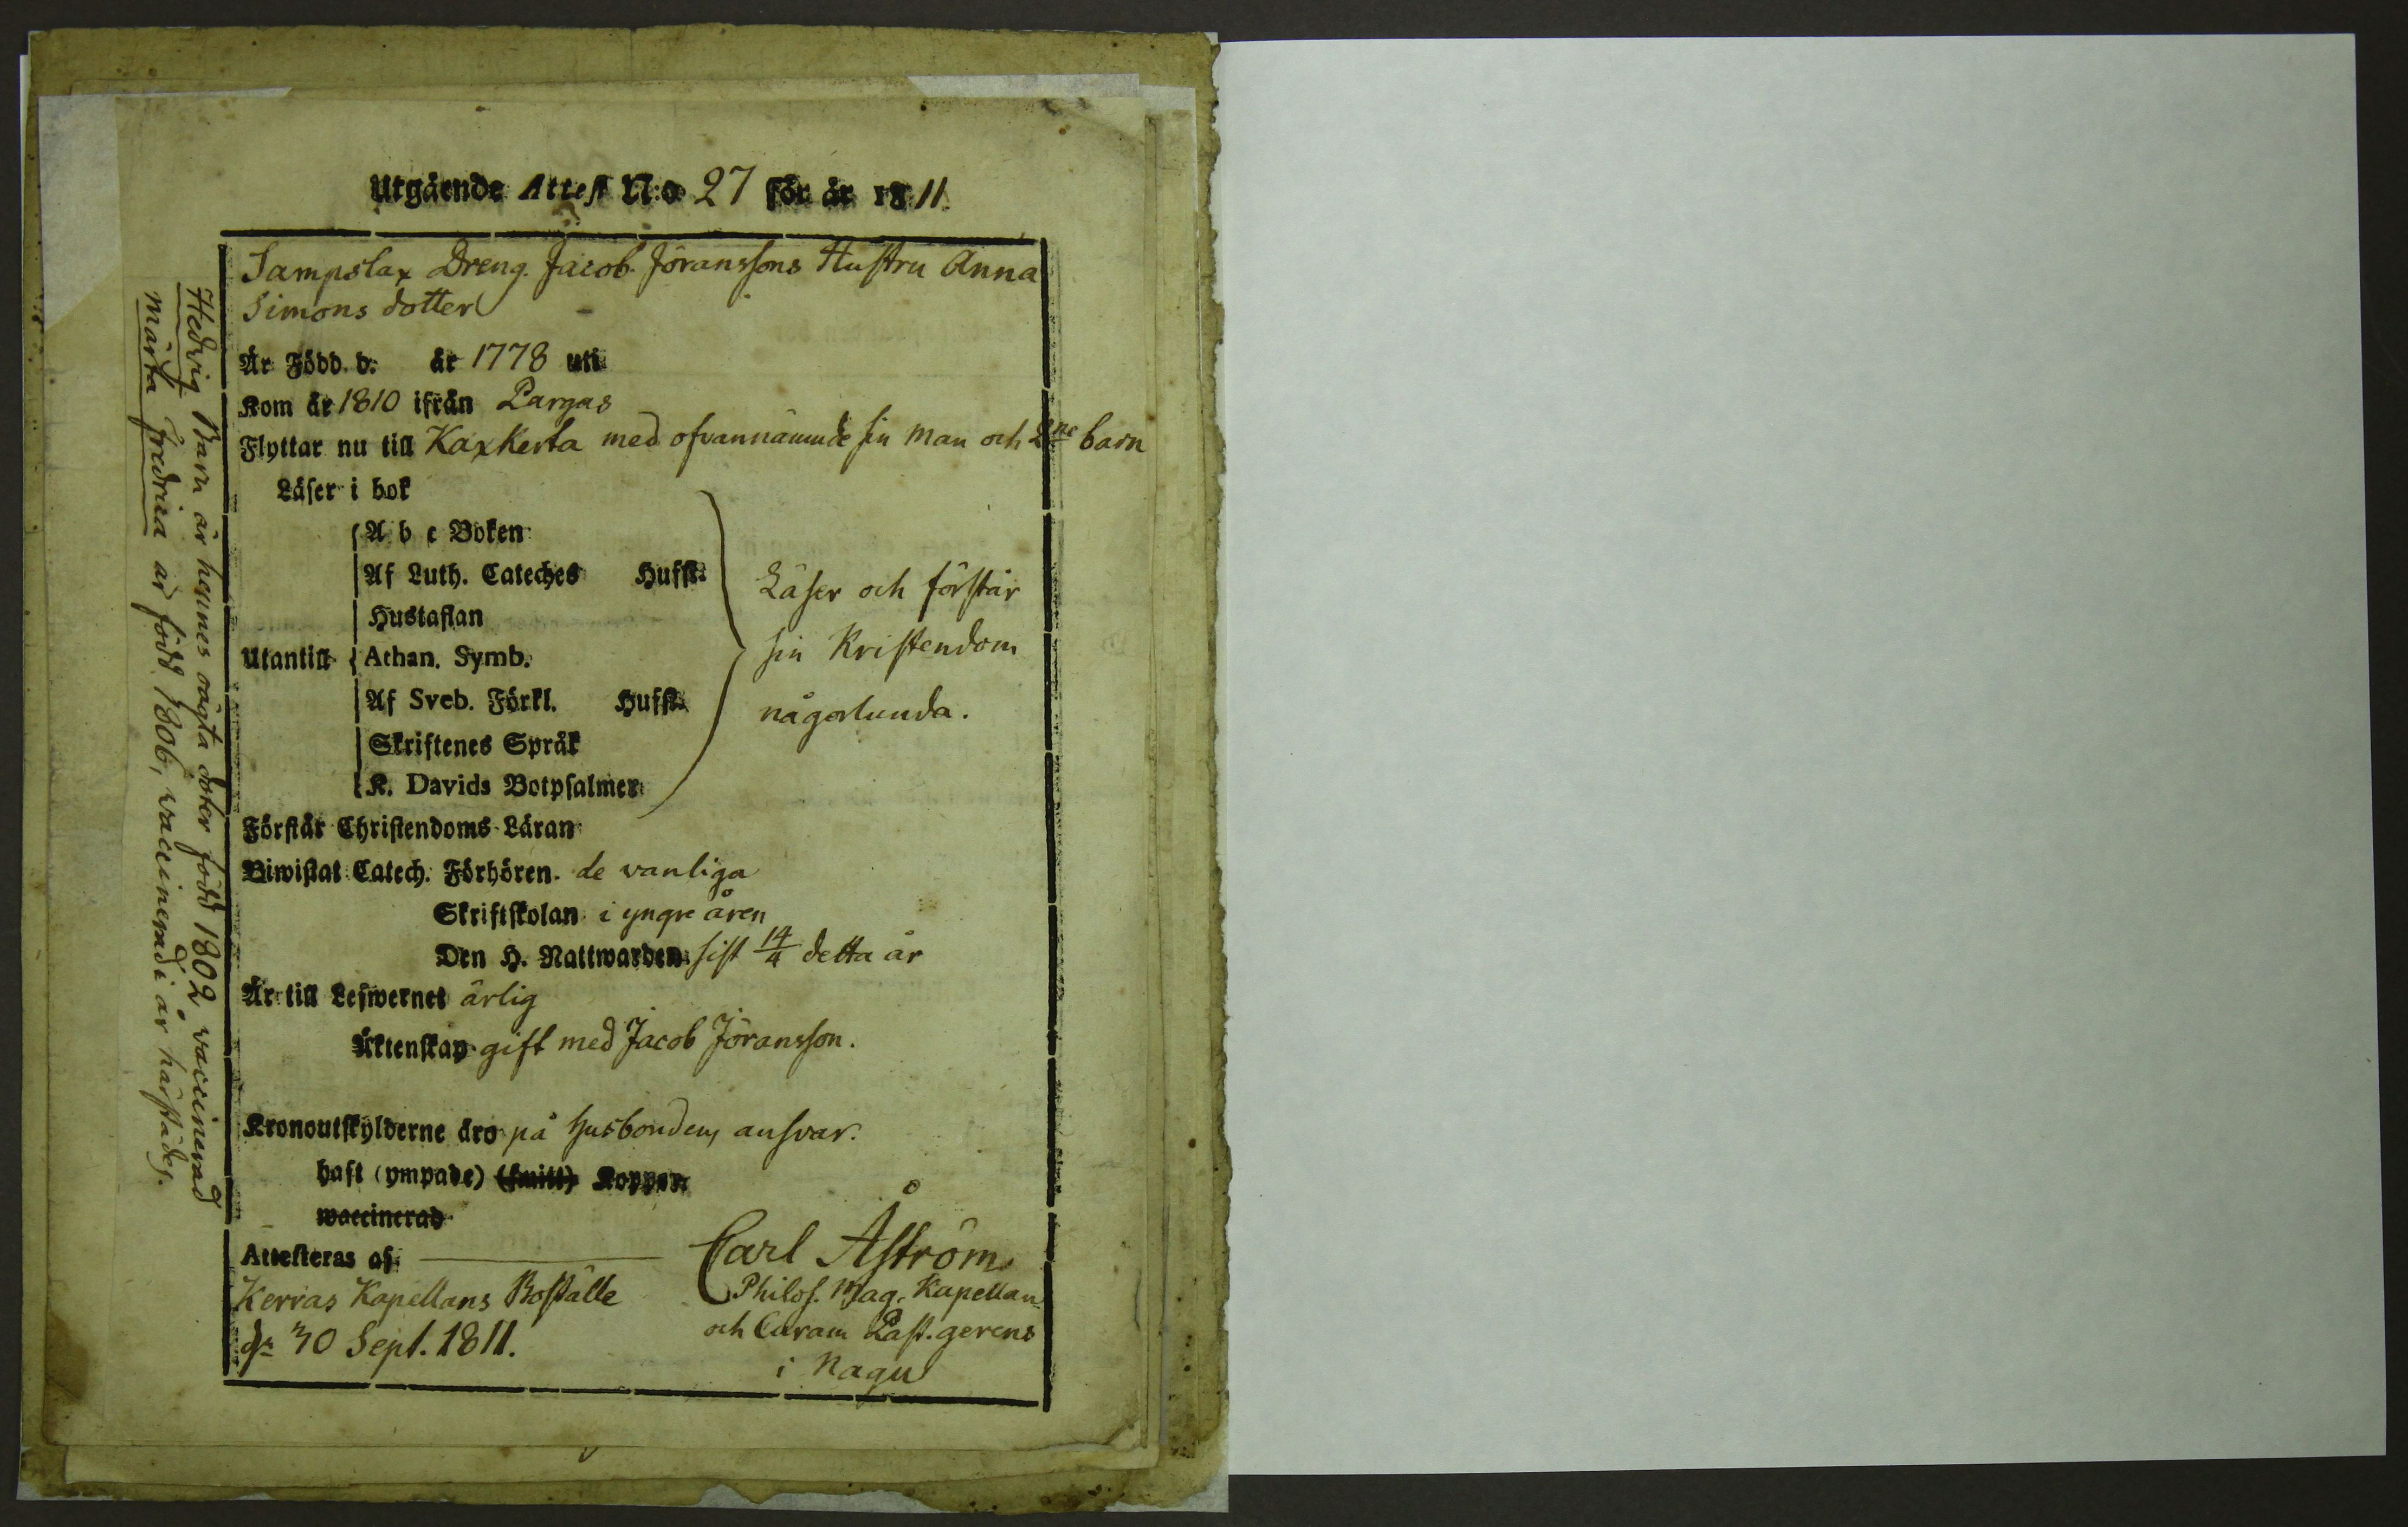 Utgående Attest N:o 27 för år 1811
Sampslax Dreng. Jacob Jöranssons Hustru Anna
Simons dotter
Är Född d. år 1778 uti
Kom år 1810 ifrån Pargas
Flyttar nu till Kaxkerta med ofvannämnde sin man och 2ne barn
Läser i bok
A b c Boken
Af Luth. Cateches Hufst.
Hustaflan
Utantill Athan. Symb.
Af Sveb. Förkl. Hufst.
Skriftenes Språk
K. Davids Botpsalmer
Läser och förstår
sin Kristendom
någorlunda.
Förstår Christendoms Läran
Biwistat Catech. Förhören de vanliga
Skriftskolan i yngre åren
Den H. Nattwarden sist 14/4 detta år
Är till Lefwernet ärlig
Äktenskap gift med Jacob Jöransson.
Kronoutskylderne äro på husbondens ansvar.
haft (ympade) (smitt) Koppor
waccinerad
Attesteras af Carl Åström
Philos. Mag. Kapellan
och Curam Past. gerens
i Nagu
Kerras Kapellans Boställe
d. 30 Sept. 1811.
Hedvig Barn är hennes oägta doter född 1802, vaccinerad
Märta Fredrica är född 1806, vaccinerad i år härstädes.